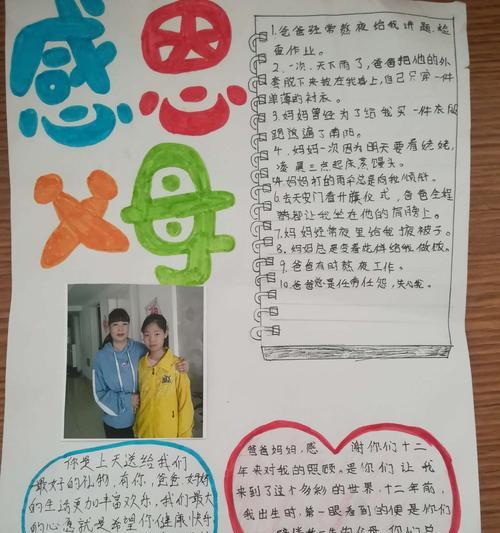 感恩
父母
1.爸爸经常熬夜给我讲题,检
查作业。
2.一次,天下雨了,爸爸把他的外
套脱下来我在身上,自己只穿一件
单薄的衬衣。
3.妈妈曾经为了给我买一件衣服
跑遍了南阳。
4.妈妈一次因为明天要看姥姥,
凌晨三点起床蒸馒头。
妈妈打的雨伞总是向我倾斜。
6.去天安门看升旗仪式,爸爸全程
让我坐在他的肩膀上。
7.妈妈经常夜里给我被子。
8.妈妈总是变着花样给我做饭。
9.爸爸有时熬夜工作。
10.爸爸总是任劳任怨,关心我。
你是上天送给我们
最好的礼物,有你,爸爸,妈妈
的生活更加丰富欢乐,我们最大
的心愿就是希望你健康快乐
爸爸妈妈,感谢你们十二
年来对我的照顾。是你们让我
来到了这个多彩的世界,十二年前,
我出生时,第一眼看到的便是你们